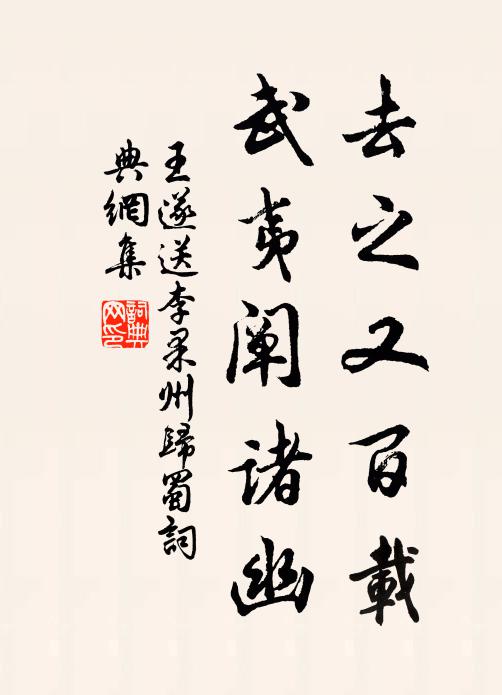 去之又百載
武夷闡諸幽
王遂送李果州歸蜀詞
典網集
詞典
网印